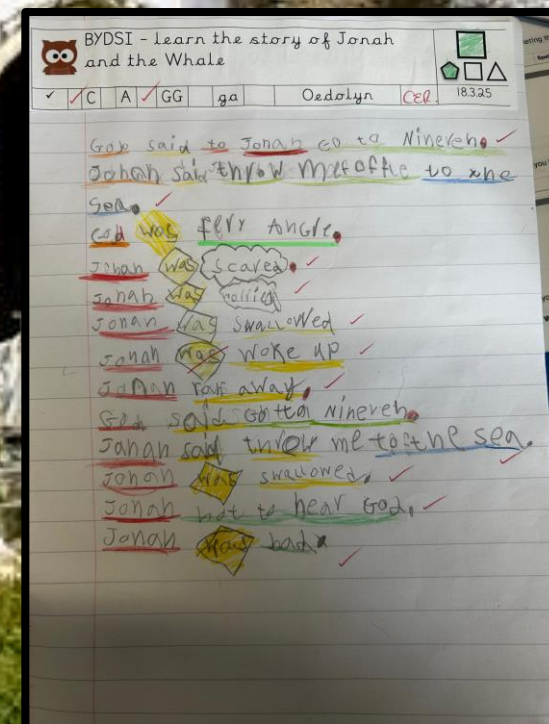 BYDSI - learn the story of Jonah
and the Whale
✓ C A GG ga Oedolyn CER 18.3.25
God said to Jonah Go to Nineveh.
Jonah said throw me off to the
sea.
God was ferr Angre.
Jonah was scared.
Jonah was worried
Jonah was swallowed
Jonah was woke up
Jonah ran away.
God said Go to Nineveh.
Jonah said throw me to the sea.
Jonah was swallowed.
Jonah not to hear God.
Jonah was bad.
eting
you